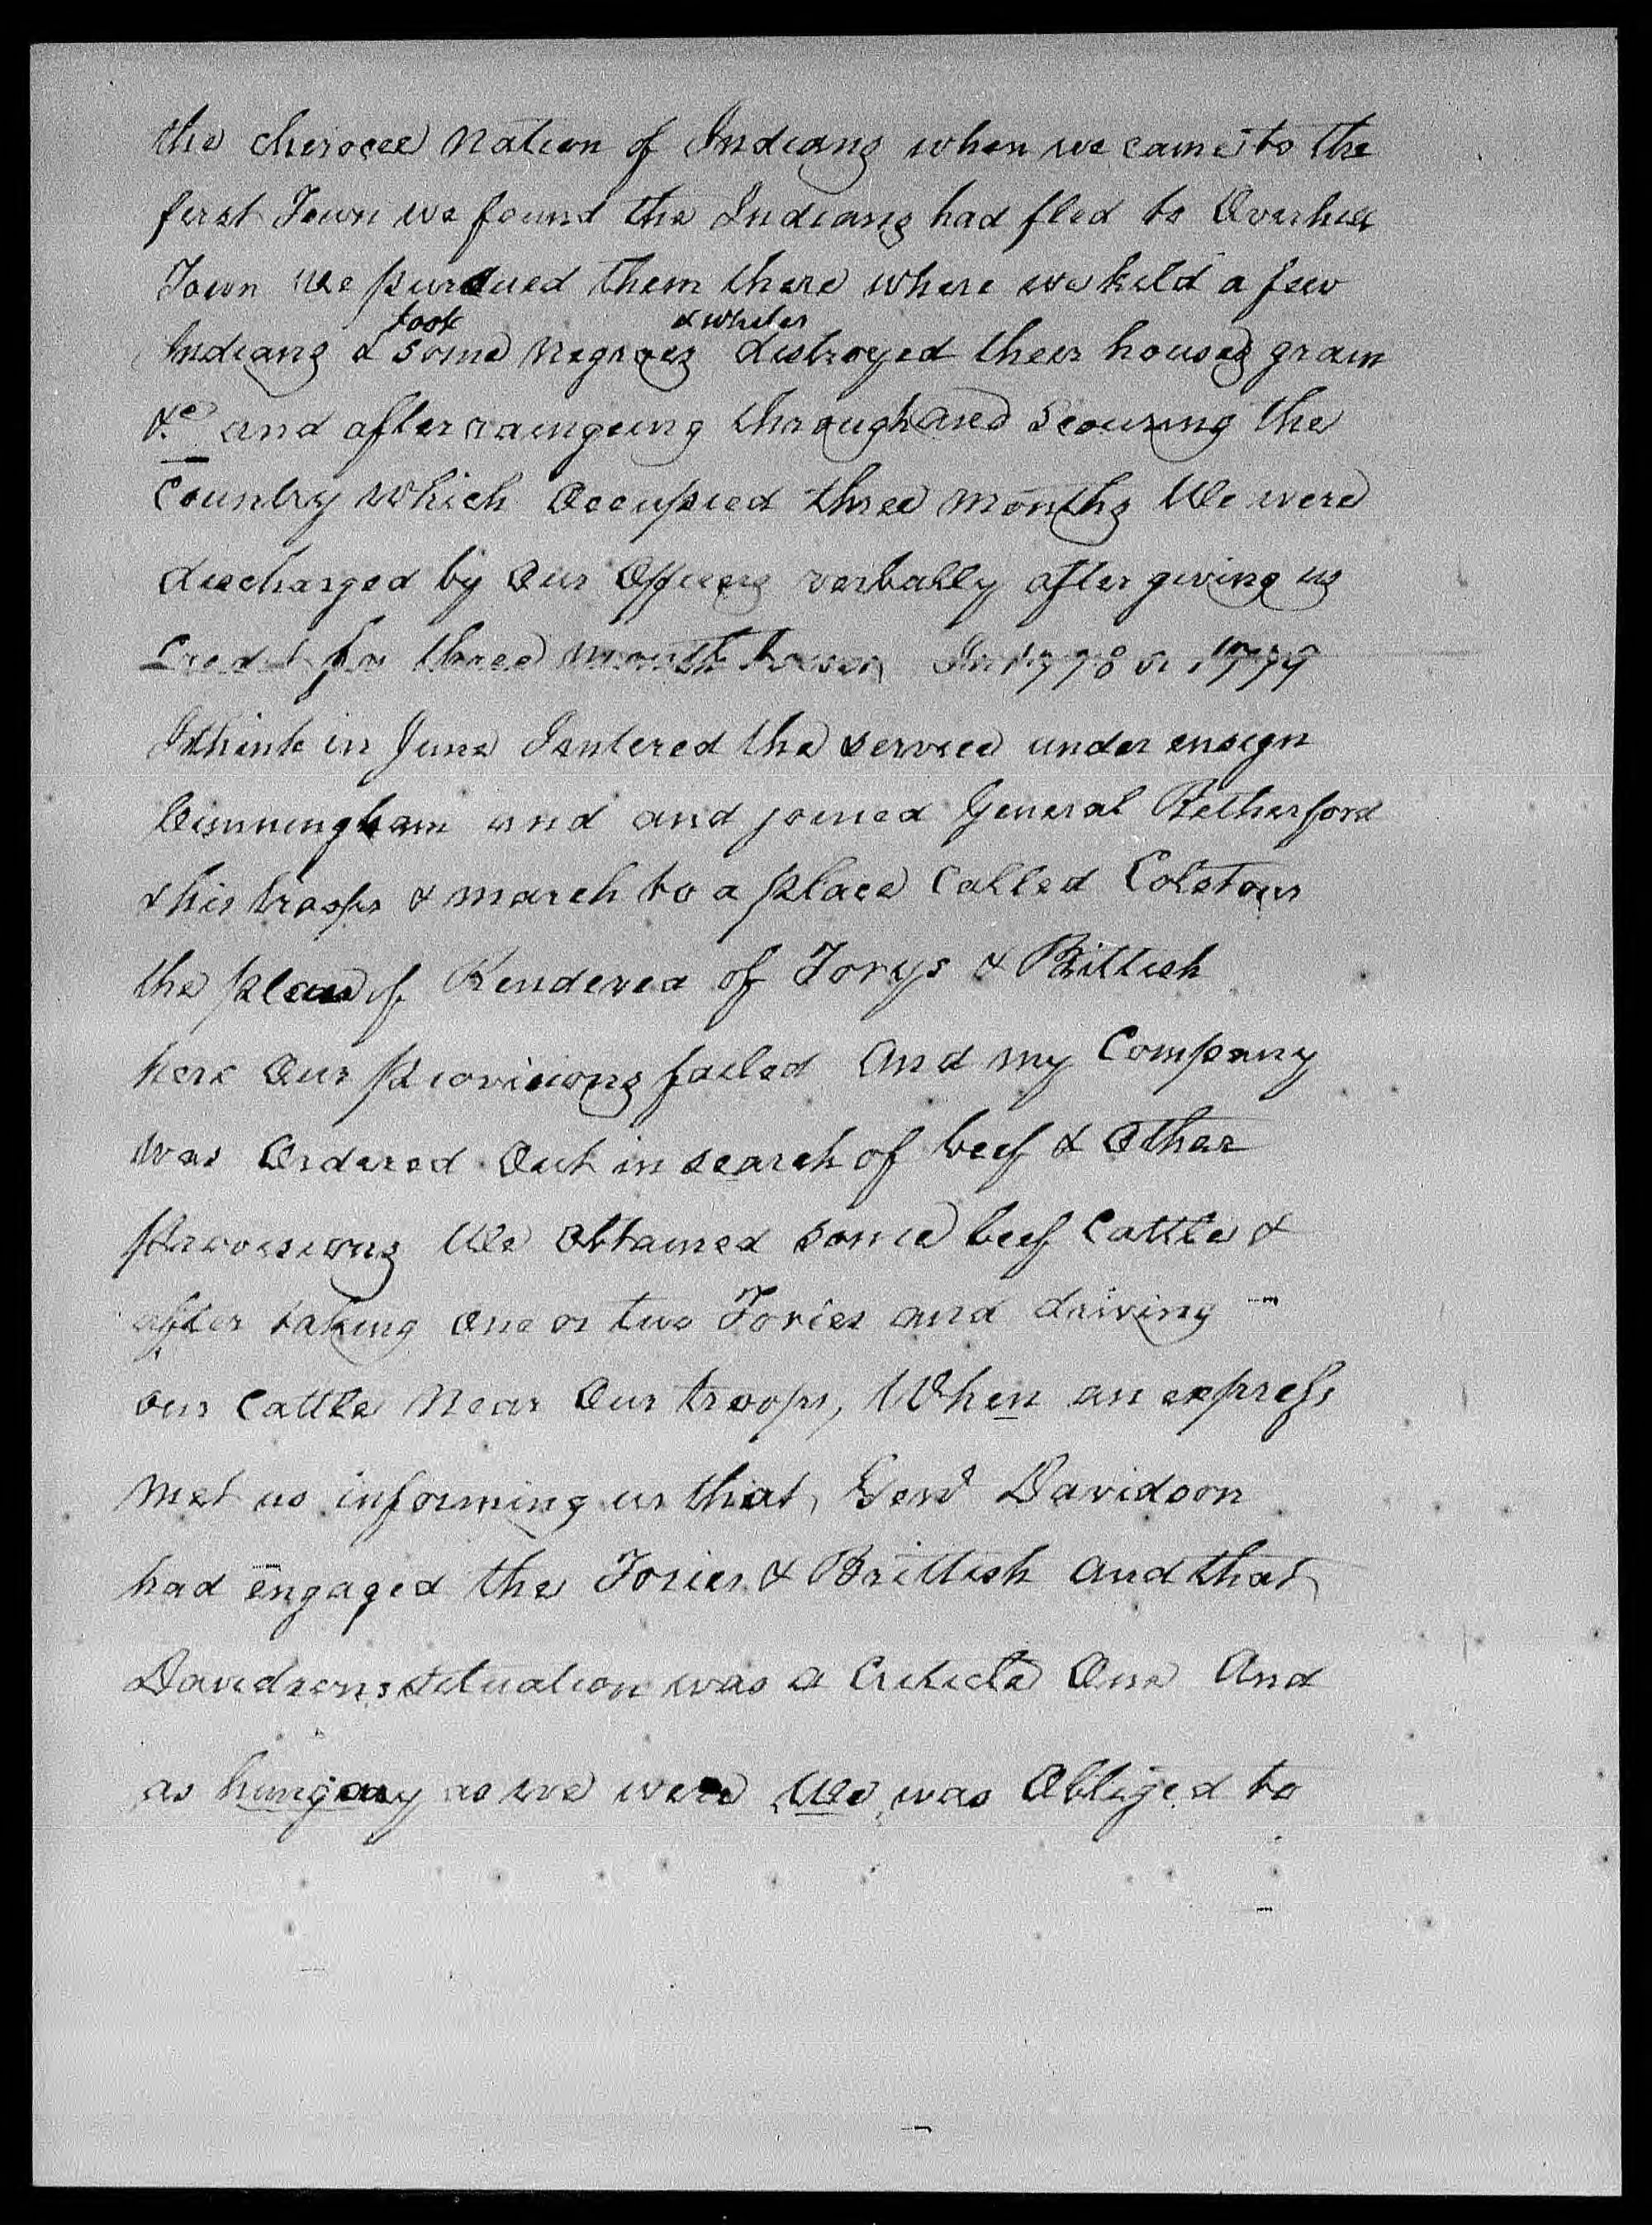 the cherocee Nation of Indians when we came to the
first Town we found the Indians had fled to Overhill
Town we pursued them there where we kild a few
Indians & took some Negroes & whites distroyed their houses grain
&c and after raingeing through and Scouring the
Country which Occupied three months We were
discharged by Our Officers verbally after giving us
Credit for three month In 1778 or 1779
I think in June I entered the service under ensign
Cunningham and and joined General Retherford
& his troops & march to a place Called Colstons
the place of Rendered of Torys & Brittish
here Our provisions failed And my Company
was Ordered Out in search of beef & Other
provisions We Obtained some beef Cattle &
after taking One or two Tories and driving
our Cattle Near Our troops, When an express
Met us informing us that, Genl Davidson
had engaged the Tories & Brittish And that
Davidsons situation was a Criticle One And
as hungary as we were We was Obliged to